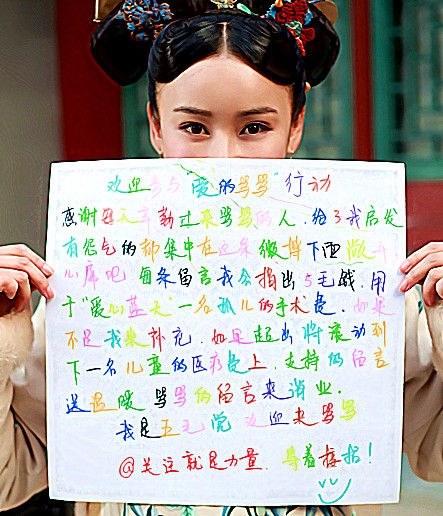 欢迎参与"爱的骂骂"行动
感谢每天辛勤过来骂骂的人.给了我启发
有怨气的都集中在这条微博下面做开
心库吧 每条留言我会捐出5毛钱.用
于"爱心蓝天"一名孤儿的手术费.如果
不足我来补充.如果超出将滚动到
下一名儿童的医疗费上.支持的留言
送温暖 骂骂的留言来消业.
我是五毛党 欢迎来骂骂
@关注就是力量. 等着捂捂!